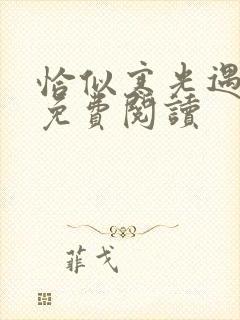 恰似寒光遇
免費閱讀
菲戈